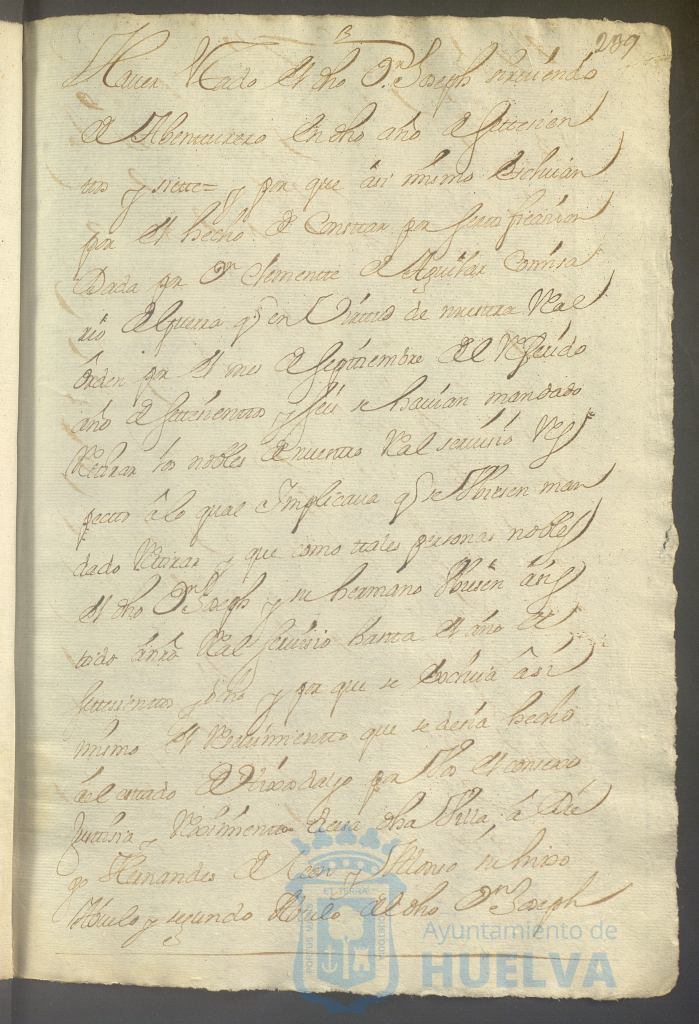 239
Haver Uado el dho Dn. Joseph sirviendo
de Abenturero en dho año de settesien
tos y siette= y por que asi mismo se echuian
por el hecho de Constar por Sertificasion
Dada por Dn Clemente de Aguilar Comisa
rio de Guerra qe en Virtud de nuestra Real
orden por el mes de Septiembre del Referido
año de settesientos y seis se hauian mandado
Retirar los nobles de nuestro Real seruisio Res
pecto a lo qual Implicaua qe se Vbiesen man
dado Retirar y que como tales personas nobles
el dho Dn Joseph y su hermano Vbiesen asis
tido a nro Real seruisio hasta el año de
settesientos y ocho y por que se excluia asi
mismo el Reciuimiento que se desia hecho
del estado de Hixodalgo por el consexo
Justisia y Reximiento de esa dha Villa a Die
go Hernandes de Leon y Alonso su hixo
Abuelo y segundo Abuelo del dho Dn Joseph
Ayuntamiento de
HUELVA